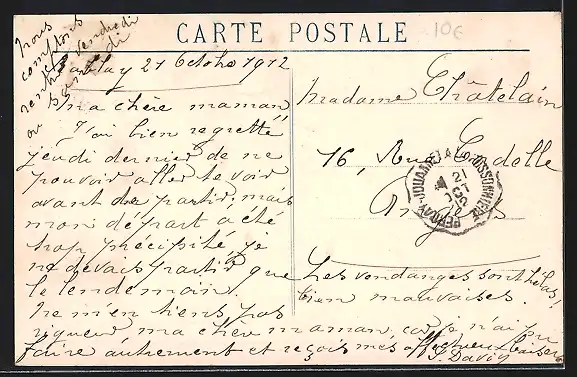 CARTE POSTALE
10€
Nous
comptons
rentrer vendredi
ou samedi
21 Octobre 1912
Ma chère maman
J'ai bien regretté
jeudi dernier de ne
pouvoir aller te voir
avant de partir, mais
mon départ a été
trop précipité, je
ne devais partir que
le lendemain.
Ne m'en tiens pas
rigueur ma chère maman, car je n'ai pu
faire autrement et reçois mes affectueux baisers
J. David
Madame Châtelain
16, Rue
Angers
21
OCT
12
Les vendanges sont hélas,
bien mauvaises.